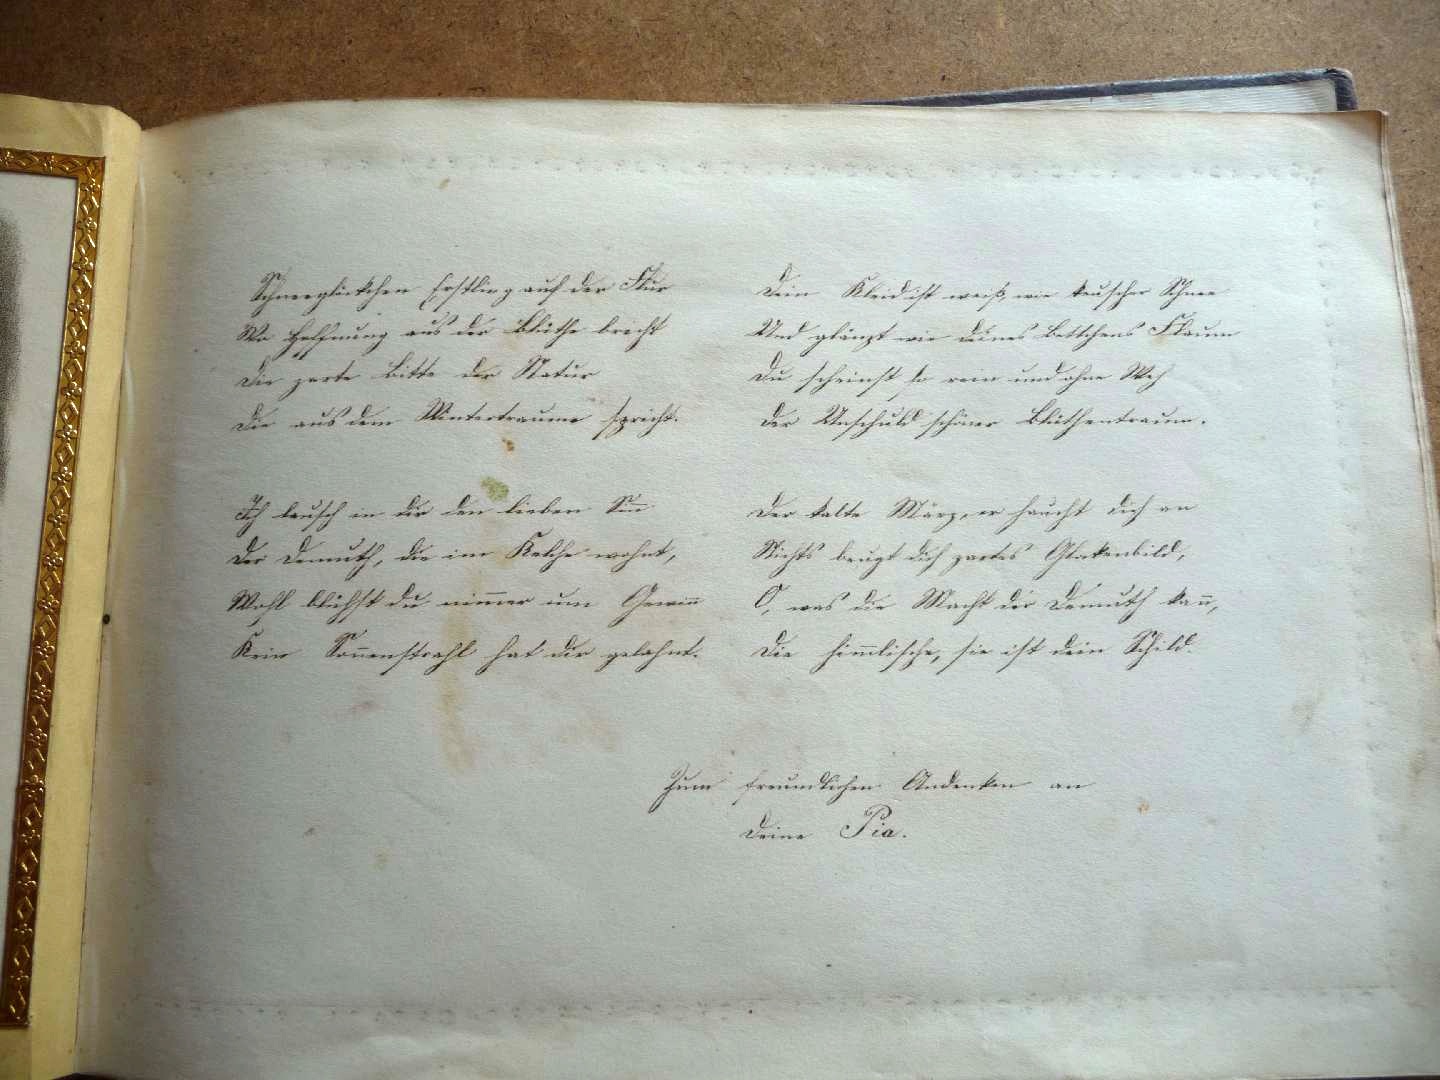 Schneeglöckchen Erstling auf der Flur
Wo Hoffnung aus der Blüthe bricht
Die zarte Bitte der Natur
Die aus dem Wintertraume spricht.
Ich lausch in dir den lieben Siñ
Der Demuth, die im Kelche wohnt,
Wohl blühst du nim̃er um Gewiñ
Kein Soñenstrahl hat dir gelohnt.
Dein Kleid ist weiß, wie keuscher Schnee
Und glänzt wie deines Bettchens Flaum
Du scheinst so rein und ohne Weh
Der Unschuld schöner Blüthentraum.
Der kalte März, er haucht dich an
Nichts beugt dich zartes Glokenbild,
O, was die Macht der Demuth kañ,
Die him̃lische, sie ist dein Schild.
Zum freundlichen Andenken an
Deine Pia.